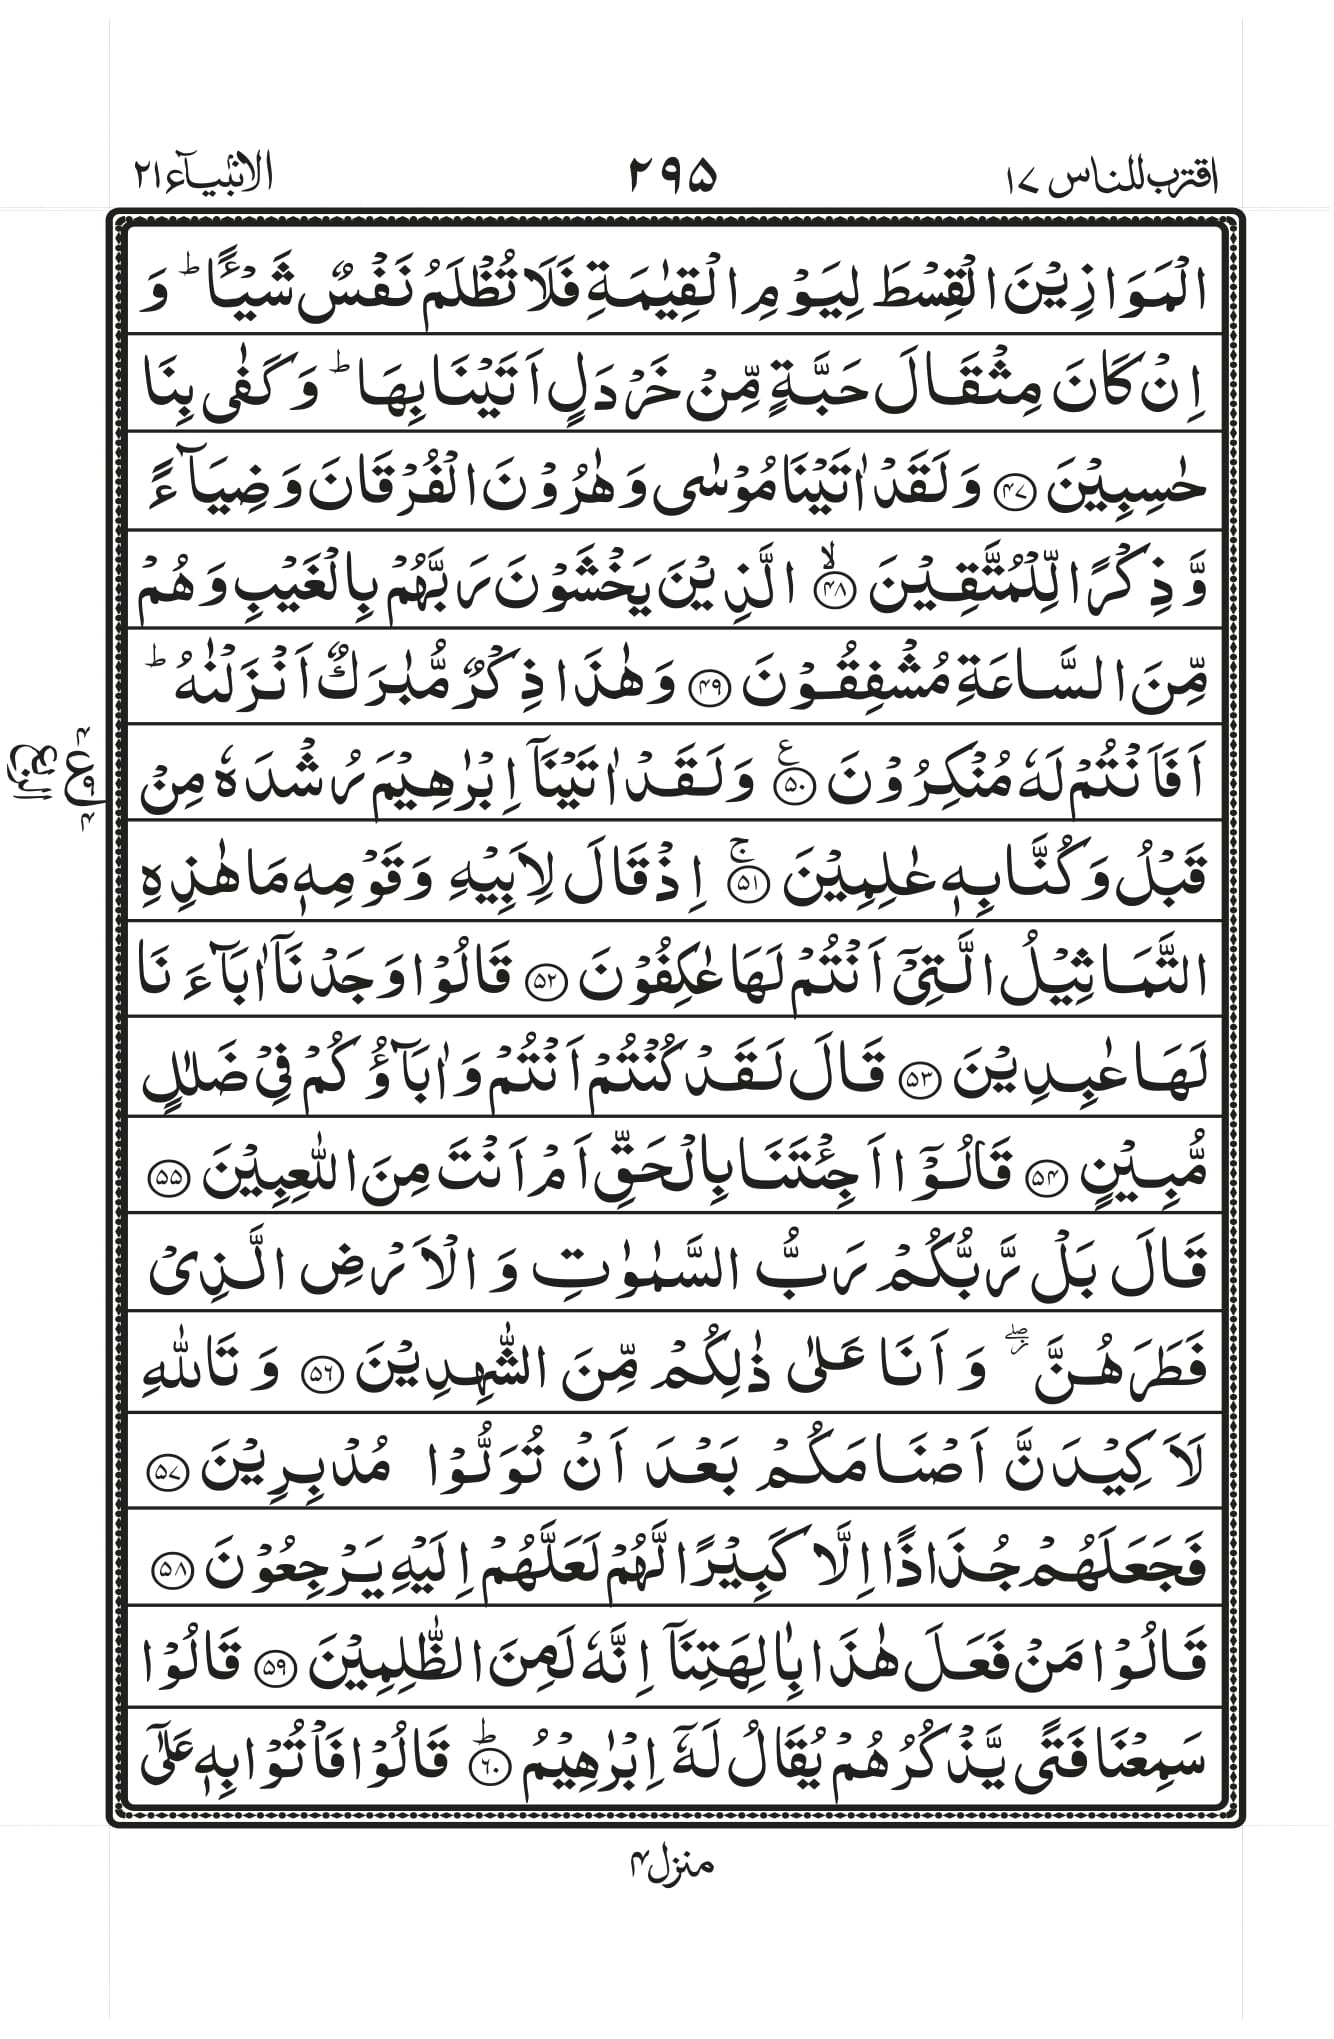 اقترب للناس ١٧
٢٩٥
الانبیآء ٢١
الْمَوَازِیْنَ الْقِسْطَ لِیَوْمِ الْقِیٰمَةِ فَلَا تُظْلَمُ نَفْسٌ شَیْـًٔا ؕ وَ
اِنْ كَانَ مِثْقَالَ حَبَّةٍ مِّنْ خَرْدَلٍ اَتَیْنَا بِهَا ؕ وَ كَفٰی بِنَا
حٰسِبِیْنَ ﴿۴۷﴾ وَ لَقَدْ اٰتَیْنَا مُوْسٰی وَ هٰرُوْنَ الْفُرْقَانَ وَ ضِیَآءً
وَّ ذِكْرًا لِّلْمُتَّقِیْنَ ﴿ۙ۴۸﴾ الَّذِیْنَ یَخْشَوْنَ رَبَّهُمْ بِالْغَیْبِ وَ هُمْ
مِّنَ السَّاعَةِ مُشْفِقُوْنَ ﴿۴۹﴾ وَ هٰذَا ذِكْرٌ مُّبٰرَكٌ اَنْزَلْنٰهُ ؕ
اَفَاَنْتُمْ لَهٗ مُنْكِرُوْنَ ﴿۵۰﴾ ع وَ لَقَدْ اٰتَیْنَاۤ اِبْرٰهِیْمَ رُشْدَهٗ مِنْ
قَبْلُ وَ كُنَّا بِهٖ عٰلِمِیْنَ ﴿ۚ۵۱﴾ اِذْ قَالَ لِاَبِیْهِ وَ قَوْمِهٖ مَا هٰذِهِ
التَّمَاثِیْلُ الَّتِیْۤ اَنْتُمْ لَهَا عٰكِفُوْنَ ﴿۵۲﴾ قَالُوْا وَجَدْنَاۤ اٰبَآءَنَا
لَهَا عٰبِدِیْنَ ﴿۵۳﴾ قَالَ لَقَدْ كُنْتُمْ اَنْتُمْ وَ اٰبَآؤُكُمْ فِیْ ضَلٰلٍ
مُّبِیْنٍ ﴿۵۴﴾ قَالُوْۤا اَجِئْتَنَا بِالْحَقِّ اَمْ اَنْتَ مِنَ اللّٰعِبِیْنَ ﴿۵۵﴾
قَالَ بَلْ رَّبُّكُمْ رَبُّ السَّمٰوٰتِ وَ الْاَرْضِ الَّذِیْ
فَطَرَهُنَّ ۖؗ وَ اَنَا عَلٰی ذٰلِكُمْ مِّنَ الشّٰهِدِیْنَ ﴿۵۶﴾ وَ تَاللّٰهِ
لَاَكِیْدَنَّ اَصْنَامَكُمْ بَعْدَ اَنْ تُوَلُّوْا مُدْبِرِیْنَ ﴿۵۷﴾
فَجَعَلَهُمْ جُذَاذًا اِلَّا كَبِیْرًا لَّهُمْ لَعَلَّهُمْ اِلَیْهِ یَرْجِعُوْنَ ﴿۵۸﴾
قَالُوْا مَنْ فَعَلَ هٰذَا بِاٰلِهَتِنَاۤ اِنَّهٗ لَمِنَ الظّٰلِمِیْنَ ﴿۵۹﴾ قَالُوْا
سَمِعْنَا فَتًی یَّذْكُرُهُمْ یُقَالُ لَهٗۤ اِبْرٰهِیْمُ ﴿ؕ۶۰﴾ قَالُوْا فَاْتُوْا بِهٖ عَلٰۤی
منزل ۴